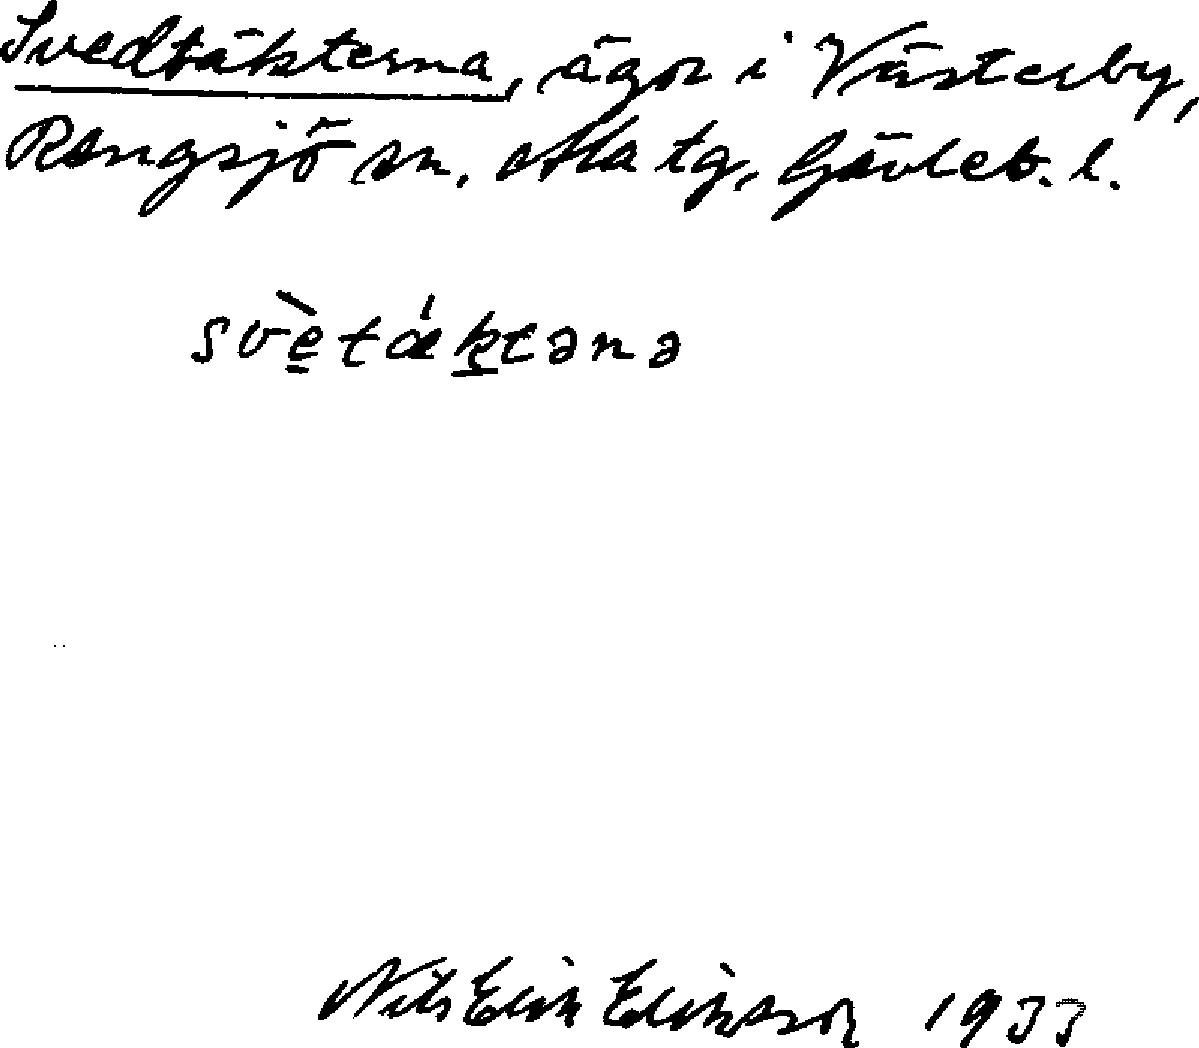 Svedtäkterna, ägor i Västerby,
Rengsjö sn. Ala tg, Gävleb. l.
svè̱tǽḵtənə
Nils Erik Eriksson 1933